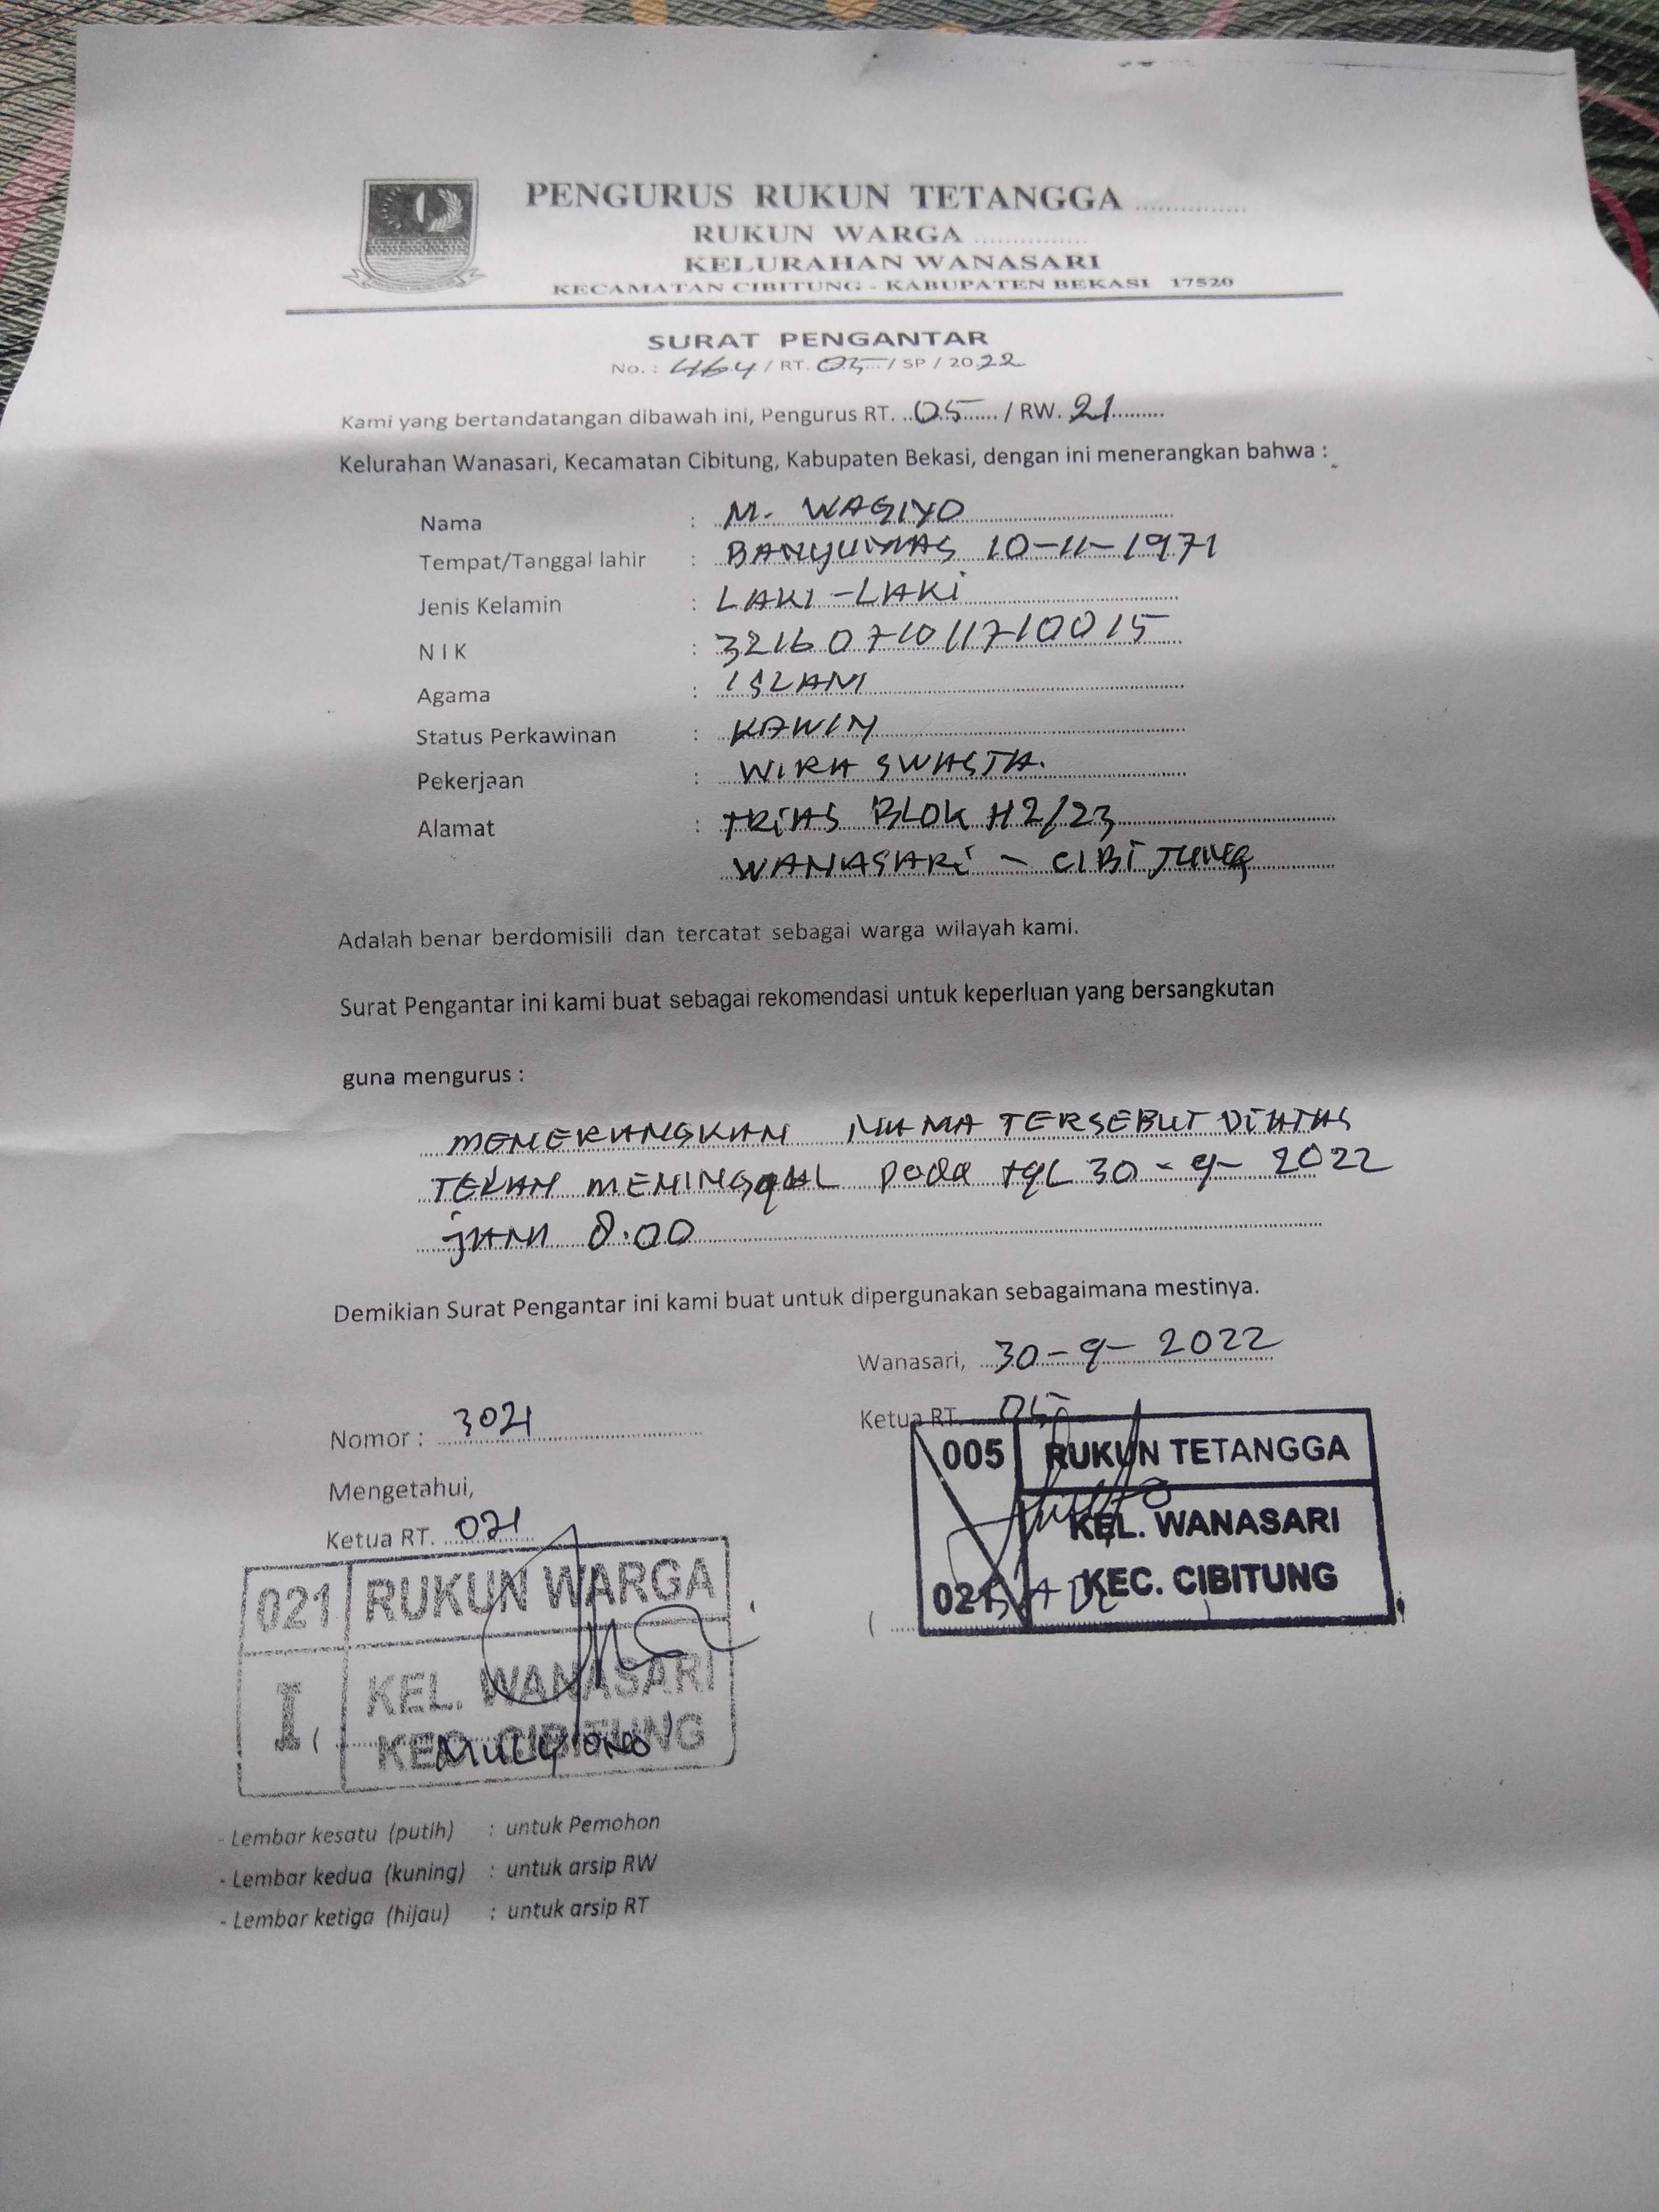 PENGURUS RUKUN TETANGGA ...............
RUKUN WARGA ...............
KELURAHAN WANASARI
KECAMATAN CIBITUNG - KABUPATEN BEKASI 17520
SURAT PENGANTAR
No. : 464 / RT. 05 / SP / 2022
Kami yang bertandatangan dibawah ini, Pengurus RT. 05 / RW. 21
Kelurahan Wanasari, Kecamatan Cibitung, Kabupaten Bekasi, dengan ini menerangkan bahwa :
Nama : M. WAGIYO
Tempat/Tanggal lahir : BANYUMAS 10-11-1971
Jenis Kelamin : LAKI-LAKI
N I K : 3216071011710015
Agama : ISLAM
Status Perkawinan : KAWIN
Pekerjaan : WIRA SWASTA.
Alamat : TRIAS BLOK H2/23
WANASARI - CIBITUNG
Adalah benar berdomisili dan tercatat sebagai warga wilayah kami.
Surat Pengantar ini kami buat sebagai rekomendasi untuk keperluan yang bersangkutan
guna mengurus :
MENERANGKAN NAMA TERSEBUT DIATAS
TELAH MENINGGAL pada tgl 30-9-2022
jAM 8.00
Demikian Surat Pengantar ini kami buat untuk dipergunakan sebagaimana mestinya.
Wanasari, 30-9-2022
Ketua RT. 05
Nomor : 3021
Mengetahui,
Ketua RT. 021
005 RUKUN TETANGGA
KEL. WANASARI
021 KEC. CIBITUNG
021 RUKUN WARGA
I KEL. WANASARI
KEC. CIBITUNG
MULYONO
- Lembar kesatu (putih) : untuk Pemohon
- Lembar kedua (kuning) : untuk arsip RW
- Lembar ketiga (hijau) : untuk arsip RT